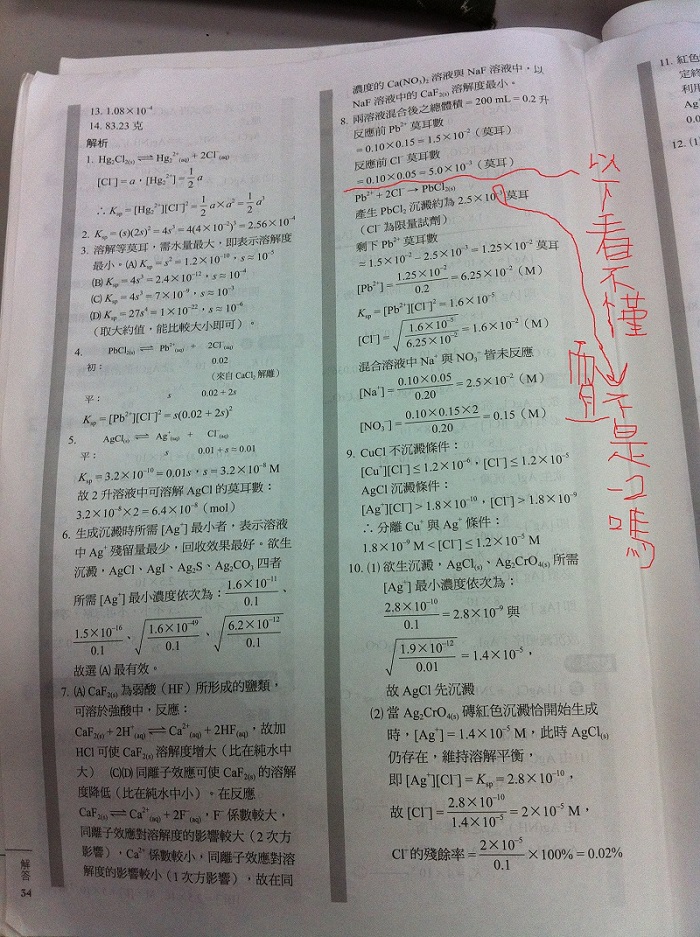 13. 1.08×10⁻⁴
14. 83.23 克
解析
1. Hg₂Cl₂₍ₛ₎ ⇌ Hg₂²⁺₍aq₎ + 2Cl⁻₍aq₎
[Cl⁻] = a，[Hg₂²⁺] = 1/2 a
∴ Ksp = [Hg₂²⁺][Cl⁻]² = 1/2 a × a² = 1/2 a³
2. Ksp = (s)(2s)² = 4s³ = 4(4×10⁻²)³ = 2.56×10⁻⁴
3. 溶解等莫耳，需水量最大，即表示溶解度
最小。(A) Ksp = s² = 1.2×10⁻¹⁰，s ≈ 10⁻⁵
(B) Ksp = 4s³ = 2.4×10⁻¹²，s ≈ 10⁻⁴
(C) Ksp = 4s³ = 7×10⁻⁹，s ≈ 10⁻³
(D) Ksp = 27s⁴ = 1×10⁻²²，s ≈ 10⁻⁶
（取大約值，能比較大小即可）。
4. PbCl₂₍ₛ₎ ⇌ Pb²⁺₍aq₎ + 2Cl⁻₍aq₎
初： 0.02
（來自 CaCl₂ 解離）
平： s 0.02 + 2s
Ksp = [Pb²⁺][Cl⁻]² = s(0.02 + 2s)²
5. AgCl₍ₛ₎ ⇌ Ag⁺₍aq₎ + Cl⁻₍aq₎
平： s 0.01 + s ≈ 0.01
Ksp = 3.2×10⁻¹⁰ = 0.01s，s = 3.2×10⁻⁸ M
故 2 升溶液中可溶解 AgCl 的莫耳數：
3.2×10⁻⁸×2 = 6.4×10⁻⁸（mol）
6. 生成沉澱時所需 [Ag⁺] 最小者，表示溶液
中 Ag⁺ 殘留量最少，回收效果最好。欲生
沉澱，AgCl、AgI、Ag₂S、Ag₂CO₃ 四者
所需 [Ag⁺] 最小濃度依次為：1.6×10⁻¹¹/0.1、
1.5×10⁻¹⁶/0.1、√(1.6×10⁻⁴⁹/0.1)、√(6.2×10⁻¹²/0.1)
故選 (A) 最有效。
7. (A) CaF₂₍ₛ₎ 為弱酸（HF）所形成的鹽類，
可溶於強酸中，反應：
CaF₂₍ₛ₎ + 2H⁺₍aq₎ ⇌ Ca²⁺₍aq₎ + 2HF₍aq₎，故加
HCl 可使 CaF₂₍ₛ₎ 溶解度增大（比在純水中
大） (C)(D) 同離子效應可使 CaF₂₍ₛ₎ 的溶解
度降低（比在純水中小）。在反應
CaF₂₍ₛ₎ ⇌ Ca²⁺₍aq₎ + 2F⁻₍aq₎，F⁻ 係數較大，
同離子效應對溶解度的影響較大（2 次方
影響），Ca²⁺ 係數較小，同離子效應對溶
解度的影響較小（1 次方影響），故在同
解答
34
濃度的 Ca(NO₃)₂ 溶液與 NaF 溶液中，以
NaF 溶液中的 CaF₂₍ₛ₎ 溶解度最小。
8. 兩溶液混合後之總體積 = 200 mL = 0.2 升
反應前 Pb²⁺ 莫耳數
= 0.10×0.15 = 1.5×10⁻²（莫耳）
反應前 Cl⁻ 莫耳數
= 0.10×0.05 = 5.0×10⁻³（莫耳）
Pb²⁺ + 2Cl⁻ → PbCl₂₍ₛ₎
產生 PbCl₂ 沉澱約為 2.5×10⁻³ 莫耳
（Cl⁻ 為限量試劑）
剩下 Pb²⁺ 莫耳數
≈ 1.5×10⁻² − 2.5×10⁻³ = 1.25×10⁻² 莫耳
[Pb²⁺] = 1.25×10⁻²/0.2 = 6.25×10⁻²（M）
Ksp = [Pb²⁺][Cl⁻]² = 1.6×10⁻⁵
[Cl⁻] = √(1.6×10⁻⁵/6.25×10⁻²) = 1.6×10⁻²（M）
混合溶液中 Na⁺ 與 NO₃⁻ 皆未反應
[Na⁺] = 0.10×0.05/0.20 = 2.5×10⁻²（M）
[NO₃⁻] = 0.10×0.15×2/0.20 = 0.15（M）
9. CuCl 不沉澱條件：
[Cu⁺][Cl⁻] ≤ 1.2×10⁻⁶，[Cl⁻] ≤ 1.2×10⁻⁵
AgCl 沉澱條件：
[Ag⁺][Cl⁻] > 1.8×10⁻¹⁰，[Cl⁻] > 1.8×10⁻⁹
∴ 分離 Cu⁺ 與 Ag⁺ 條件：
1.8×10⁻⁹ M < [Cl⁻] ≤ 1.2×10⁻⁵ M
10. (1) 欲生沉澱，AgCl₍ₛ₎、Ag₂CrO₄₍ₛ₎ 所需
[Ag⁺] 最小濃度依次為：
2.8×10⁻¹⁰/0.1 = 2.8×10⁻⁹ 與
√(1.9×10⁻¹²/0.01) = 1.4×10⁻⁵，
故 AgCl 先沉澱
(2) 當 Ag₂CrO₄₍ₛ₎ 磚紅色沉澱恰開始生成
時，[Ag⁺] = 1.4×10⁻⁵ M，此時 AgCl₍ₛ₎
仍存在，維持溶解平衡，
即 [Ag⁺][Cl⁻] = Ksp = 2.8×10⁻¹⁰，
故 [Cl⁻] = 2.8×10⁻¹⁰/1.4×10⁻⁵ = 2×10⁻⁵ M，
Cl⁻ 的殘餘率 = 2×10⁻⁵/0.1 ×100% = 0.02%
以下看不懂
不是
嗎
11. 紅色
定終
利用
Ag
0.0
12. (1)